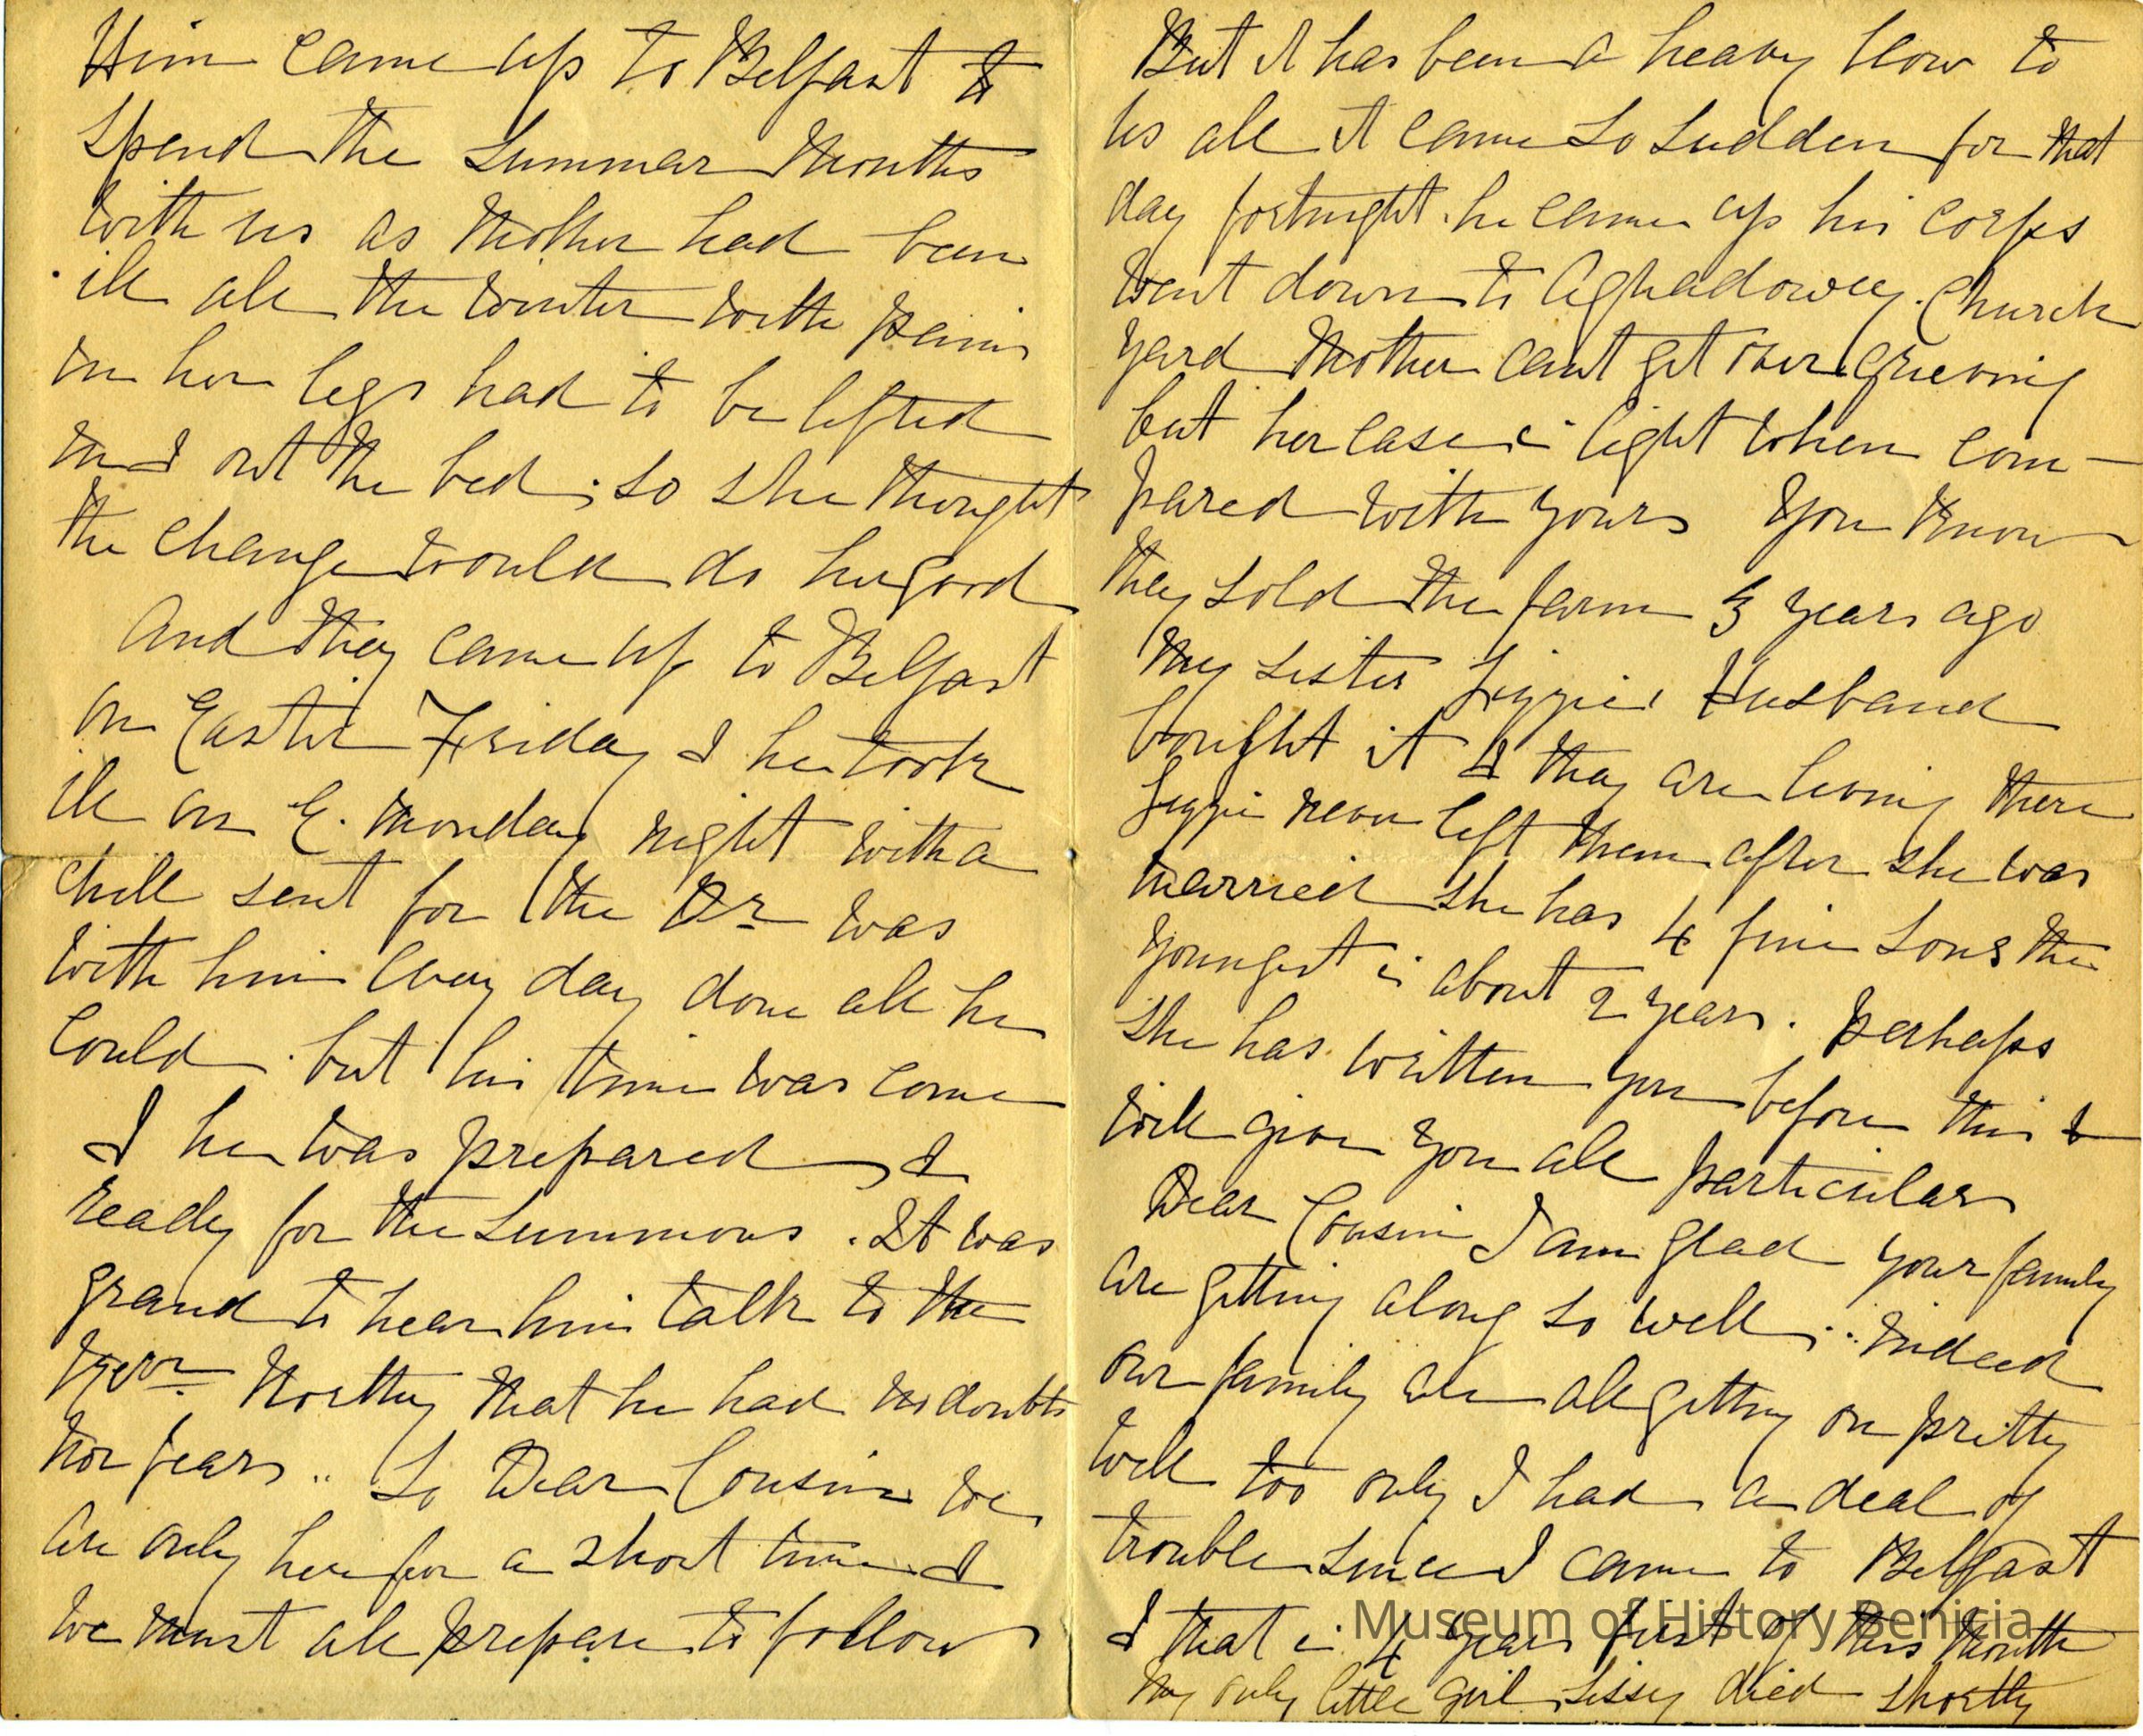 Him came up to Belfast to
spend the summer months
with us as Mother had been
ill all the winter with pains
in her legs had to be lifted
in & out the bed; so she thought
the change would do her good
And they came up to Belfast
on Easter Friday & he took
ill on E. Monday night with a
chill sent for the Dr was
with him every day done all he
could. but his time was come
& he was prepared, &
ready for the summons. It was
grand to hear him talk to the
that he had no doubts
nor fears.. So Dear Cousin we
are only here for a short time &
we must all prepare to follow
But it has been a heavy blow to
us all it came so sudden for that
day fortnight he came up his corps
went down to Aghadowey. Church
yard Mother cant get over grieving
but her case is light when com-
pared with yours You know
they sold the farm 3 years ago
My sister Lizzies Husband
bought it & they are living there
Lizzie never left them after she was
married she has 4 fine sons the
youngest is about 2 years. perhaps
she has written you before this &
will give you all particulars
Dear Cousin I am glad your family
are getting along so well.. indeed
our family are all getting on pritty
well too only I had a deal of
trouble since I came to Belfast
& that is 4 years first of this month
My only little girl Sissy died shortly
Museum of History Benicia